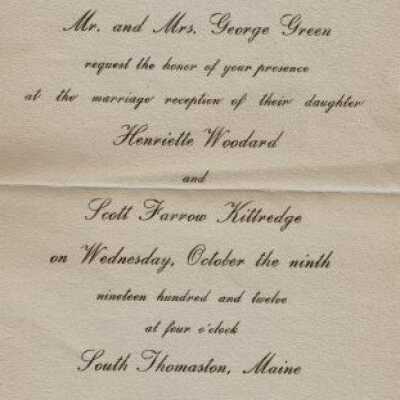 Mr. and Mrs. George Green
request the honor of your presence
at the marriage reception of their daughter
Henriette Woodard
and
Scott Farrow Kittredge
on Wednesday, October the ninth
nineteen hundred and twelve
at four o'clock
South Thomaston, Maine